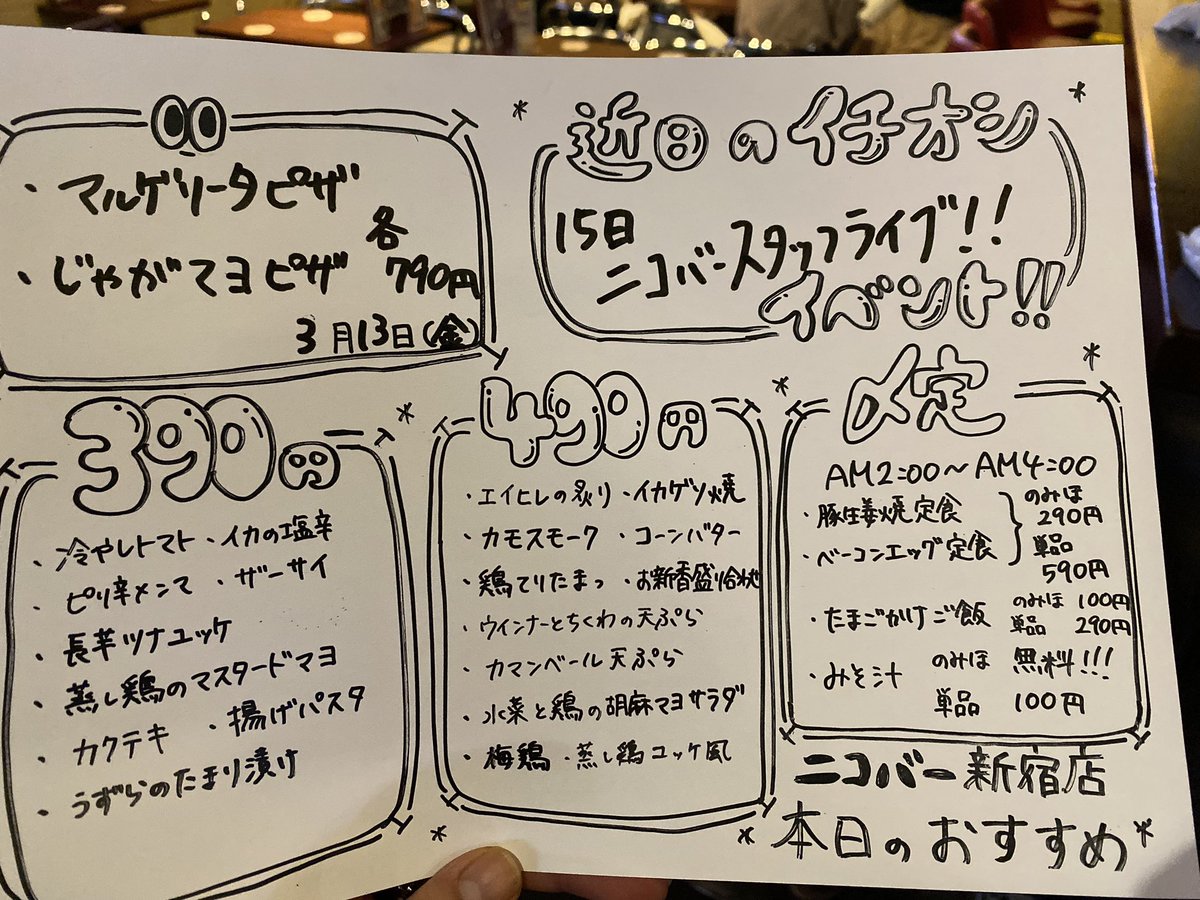 ・マルゲリータピザ
・じゃがマヨピザ 各790円
3月13日(金)
近日のイチオシ
15日
ニコバースタッフライブ!!
イベント!!
390円
・冷やしトマト ・イカの塩辛
・ピリ辛メンマ ・ザーサイ
・長芋ツナユッケ
・蒸し鶏のマスタードマヨ
・カクテキ ・揚げパスタ
・うずらのたまり漬け
490円
・エイヒレの炙り ・イカゲソ焼
・カモスモーク ・コーンバター
・鶏てりたまっ ・お新香盛り合わせ
・ウインナーとちくわの天ぷら
・カマンベール天ぷら
・水菜と鶏の胡麻マヨサラダ
・梅鶏 ・蒸し鶏ユッケ風
〆定
AM2:00〜AM4:00
・豚生姜焼定食
・ベーコンエッグ定食
のみほ
290円
単品
590円
・たまごかけご飯 のみほ 100円
単品 290円
・みそ汁 のみほ 無料!!!
単品 100円
ニコバー新宿店
本日のおすすめ